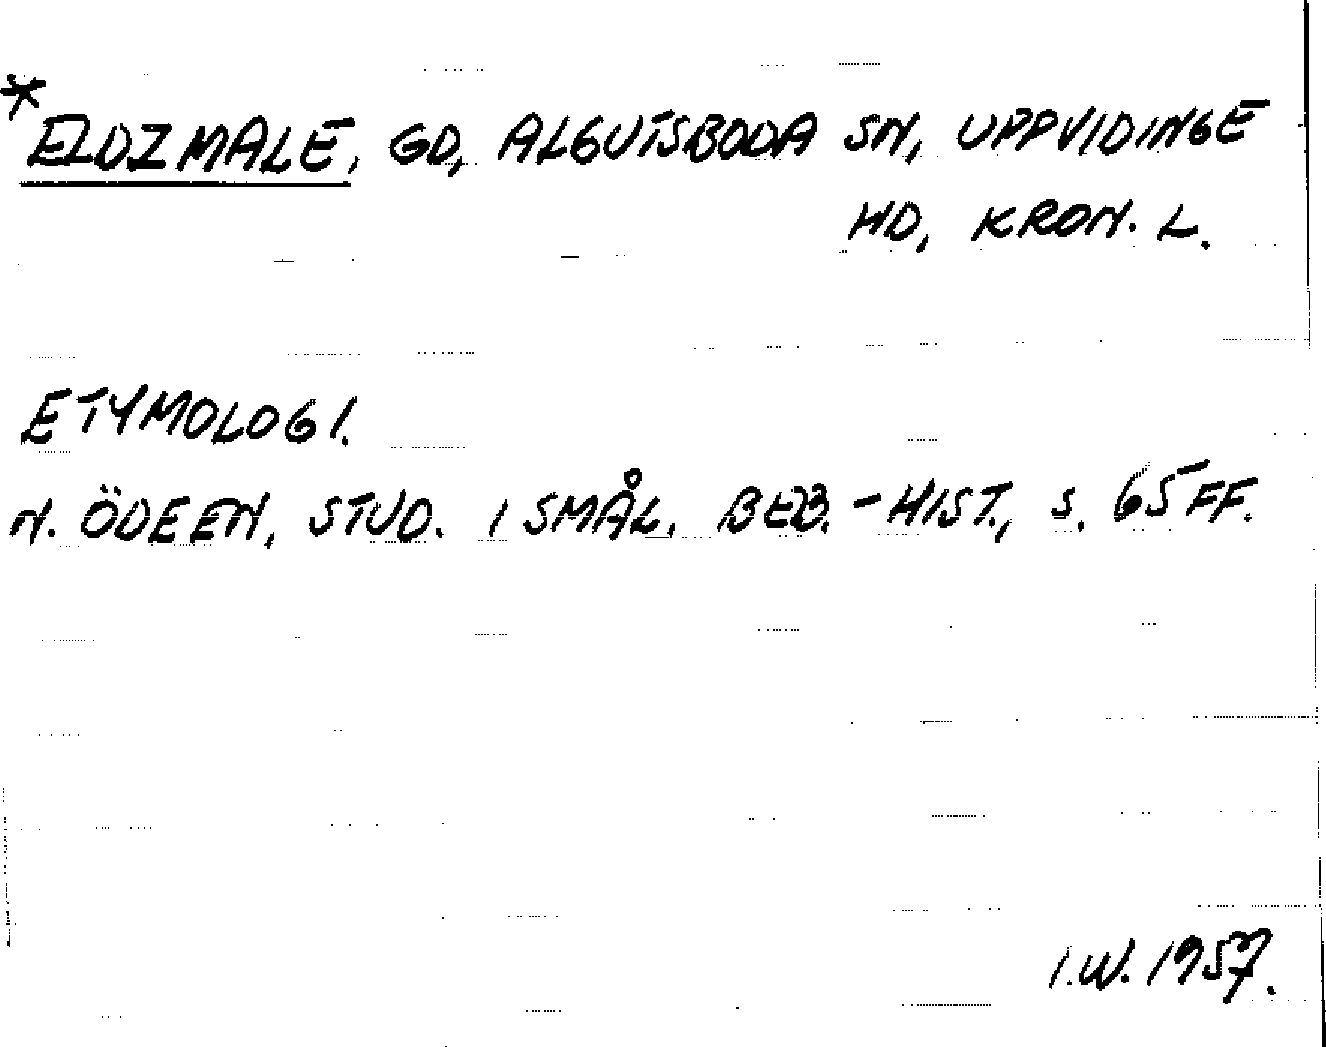 *ELDZMALE, GD, ALGUTSBODA SN, UPPVIDINGE
HD, KRON. L.
ETYMOLOGI.
N. ÖDEEN, STUD. I SMÅL. BEB.-HIST., S. 65 FF.
I.W. 1957.